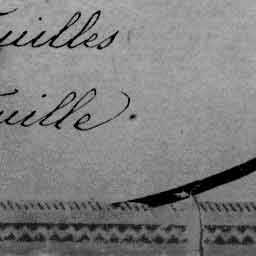 uilles
uille.